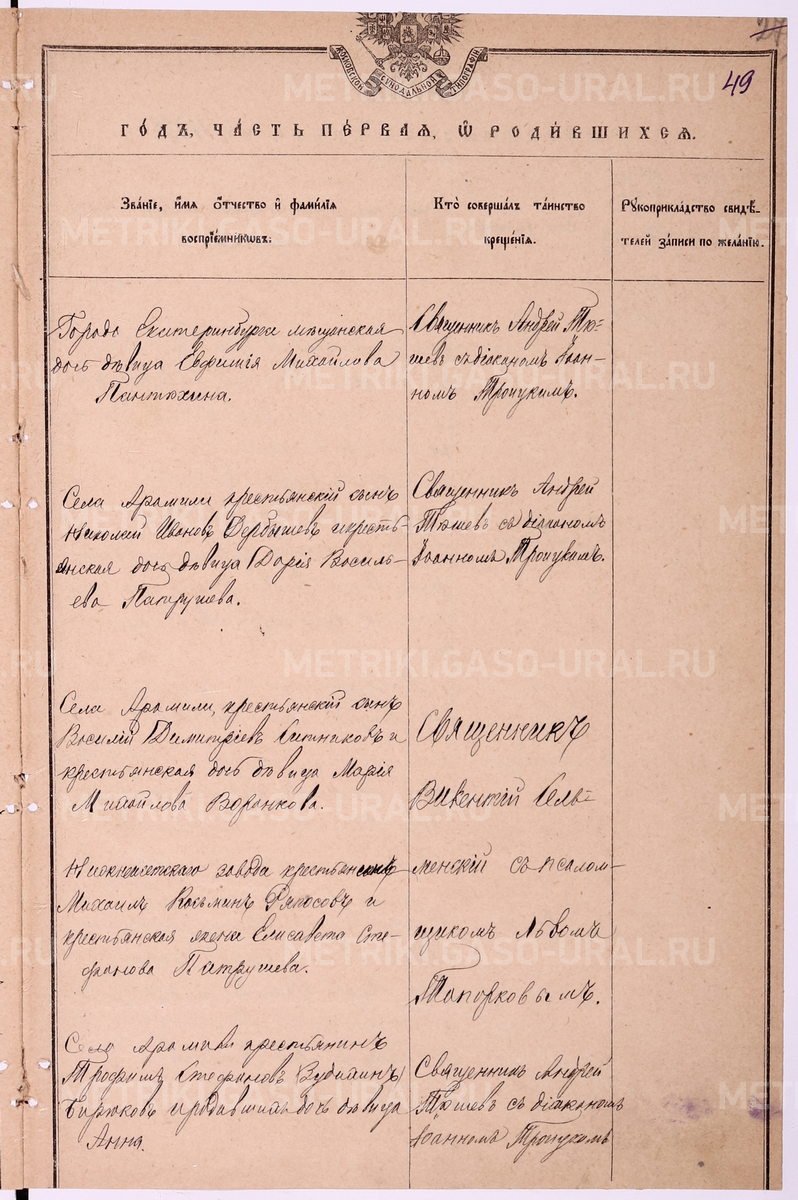 МОСКОВСКОЙ СѴНОДАЛЬНОЙ ТИПОГРАФІИ
49
ГОДЪ, ЧАСТЬ ПЕРВАЯ, Ѡ РОДИВШИХСЯ.
Званіе, имя отчество и фамилія
воспріемниковъ.
Кто совершалъ таинство
крещенія.
Рукоприкладство свидѣ-
телей записи по желанію.
Города Екатеринбурга мѣщанская
дочь дѣвица Евфимія Михайлова
Пантюхина.
Священникъ Андрей Тю-
шевъ съ діакономъ Іоан-
номъ Троицкимъ.
Села Арамили крестьянскій сынъ
Николай Ивановъ Дербышевъ и кресть-
янская дочь дѣвица Дарія Василь-
ева Патрушева.
Священникъ Андрей
Тюшевъ съ діакономъ
Іоанномъ Троицкимъ.
Села Арамили, крестьянскій сынъ
Василій Димитріевъ Ситниковъ и
крестьянская дочь дѣвица Марія
Михайлова Воронкова.
Священникъ
Викентій Сель-
менскій съ псалом-
щикомъ Львомъ
Топорковымъ.
Нижнеисетскаго завода крестьянскій
Михаилъ Козьминъ Ряпосовъ и
крестьянская жена Елисавета Сте-
фанова Патрушева.
Села Арамили крестьянинъ
Трофимъ Стефановъ
Бирюковъ и родившихъ дочь дѣвица
Анна.
Священникъ Андрей
Тюшевъ съ діакономъ
Іоанномъ Троицкимъ
METRIKI.GASO-URAL.RU